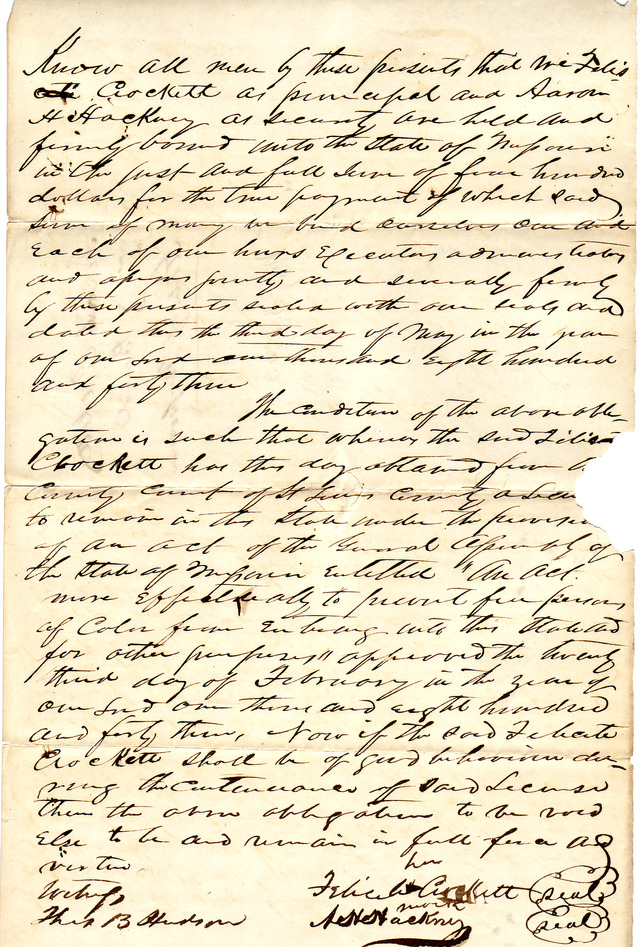 Know all men by these presents that we Felis
Crockett as principal and Aaron
H Hackney as security are held and
firmly bound unto the State of Missouri
in the just and full sum of four hundred
dollars for the true payment of which said
sum of money we bind ourselves our and
each of our heirs Executors administrators
and assigns jointly and severally firmly
by these presents sealed with our seals and
dated this the third day of May in the year
of our Lord one thousand eight hundred
and forty three
The condition of the above obli-
gation is such that whereas the said Felis
Crockett has this day obtained from
County Court of St Louis County a
to remain in this State under the
of an act of the General Assembly of
the State of Missouri Entitled "An Act
more Effectually to prevent free persons
of Color from Entering into this State and
for other purposes" approved the twenty
third day of February in the year of
our Lord one thousand eight hundred
and forty three, Now if the said Felicite
Crockett shall be of good behaviour du-
ring the continuance of said License
then the above obligation to be void
Else to be and remain in full force and
virtue
her
Felicite Crockett seal
mark
Thos B Hudson A H Hackney Seal